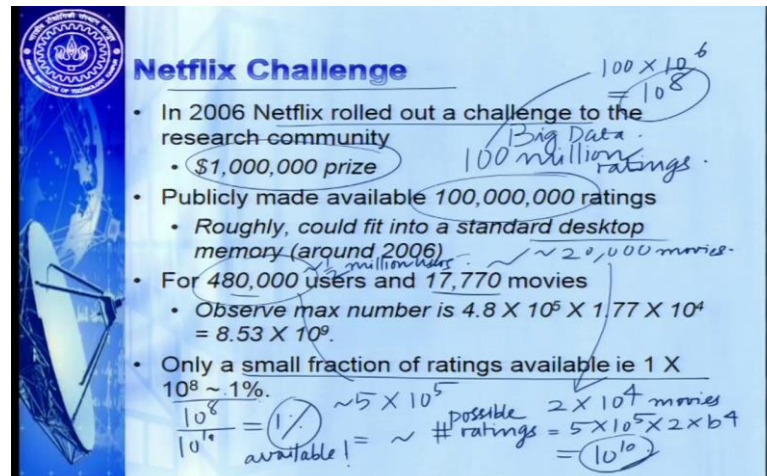 Netflix Challenge
100 × 10^6
= 10^8
• In 2006 Netflix rolled out a challenge to the
research community
Big Data.
100 million
ratings.
• $1,000,000 prize
• Publicly made available 100,000,000 ratings
• Roughly, could fit into a standard desktop
memory (around 2006)
~ 20,000 movies.
~ ½ million users.
• For 480,000 users and 17,770 movies
• Observe max number is 4.8 X 10⁵ X 1.77 X 10⁴
= 8.53 X 10⁹.
• Only a small fraction of ratings available ie 1 X
10⁸ ~ 1%.
~5 × 10^5
2 × 10^4 movies
10^8
10^10
= 1%
available!
= ~ # possible ratings = 5×10^5×2×10^4
= 10^10